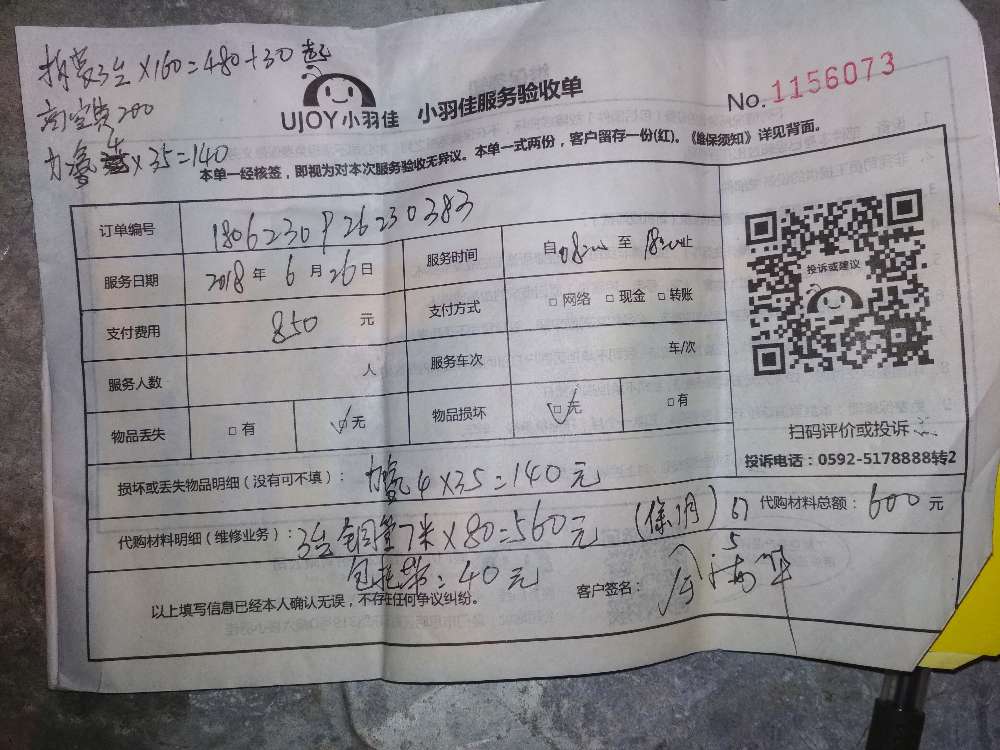 拆装3台×160=480+30
高空费200
加氟4×35=140
UJOY小羽佳 小羽佳服务验收单
No. 1156073
本单一经核签，即视为对本次服务验收无异议。本单一式两份，客户留存一份(红)。《维保须知》详见背面。
订单编号 1806230926230383
服务日期 2018年6月26日 服务时间 自 至 止
支付费用 850元 支付方式 □网络 □现金 □转账
服务人数 人 服务车次 车/次
物品丢失 □有 □无 物品损坏 □无 □有
投诉或建议
扫码评价或投诉
投诉电话：0592-5178888转2
损坏或丢失物品明细（没有可不填）： 加氟4×35=140元
代购材料明细（维修业务）：3台铜管7米×80=560元 代购材料总额：600元
包扎带=40元
以上填写信息已经本人确认无误，不存在任何争议纠纷。 客户签名：